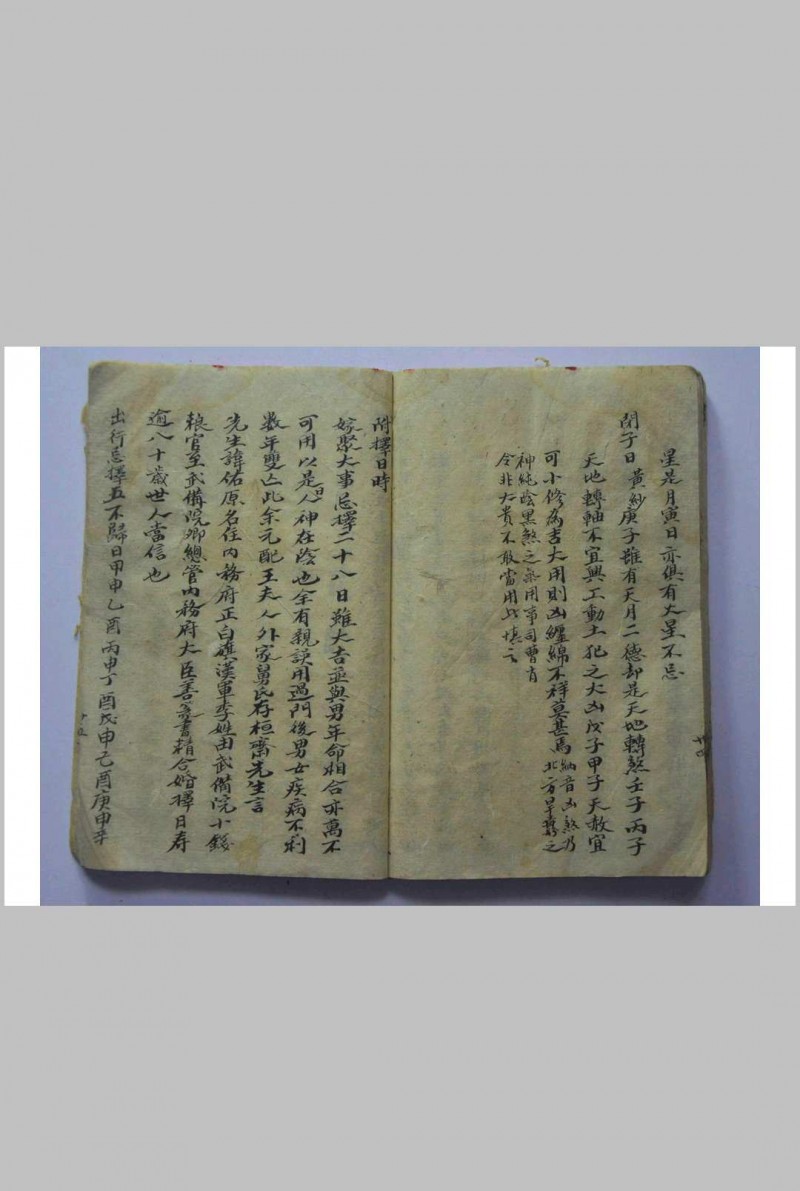 星是月寅日亦俱有火星不忌
閉子日 黃紗庚子雖有天月二德却是天地轉煞壬子丙子
天地轉軸不宜興工動土犯之大凶戊子甲子天赦宜
可小修為吉大用則凶纏綿不祥莫甚焉 納音凶煞乃
北方旱 之
神純陰黑煞之氣用事司曹有
令非大貴不敢當用此慎之
附擇日時
嫁聚大事忌擇二十八日雖大吉並與男年命相合亦萬不
可用以是日人神在陰也余有親誤用過門後男女疾病不利
数年雙亡此余元配王夫人外家舅氏存桓齋先生言
先生諱佑原名住內務府正白旗漢軍李姓由武備院卜
粮官至武備院卿總管內務府大臣善 書精合婚擇日存
逾八十歲世人當信也
出行忌擇五不歸日甲申乙酉丙申丁酉戊申己酉庚申辛
十五